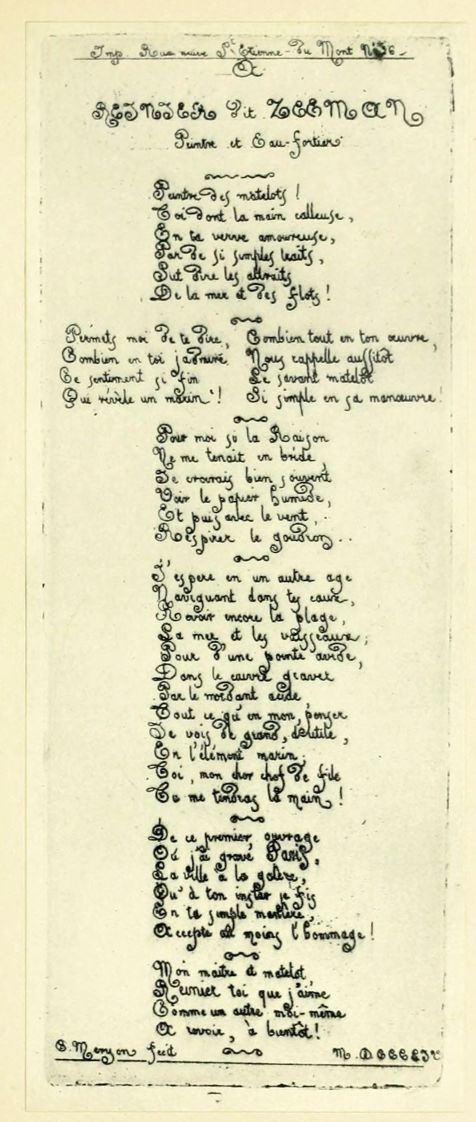 Imp. Rue neuve St Etienne-du Mont No 26-
A
REINIER dit ZEEMAN
Peintre et Eau-fortier
Peintre des matelots !
Toi dont la main calleuse,
En ta verve amoureuse,
Par de si simples traits,
Sut dire les attraits
De la mer et des flots !
Permets moi de te dire,
Combien en toi j'admire
Ce sentiment si fin
Qui révèle un marin !
Combien tout en ton œuvre,
Nous rappelle aussitôt
Le savant matelot
Si simple en sa manœuvre !
Pour moi si la Raison
Ne me tenait en bride,
Je croirais bien souvent
Voir le papier humide,
Et puis avec le vent,
Respirer le goudron..
J'espère en un autre age
Naviguant dans tes eaux,
Revoir encore la plage,
La mer et les vaisseaux ;
Pour d'une pointe avide,
Dans le cuivre graver
Par le mordant acide
Tout ce qu'en mon penser
Je vois de grand, d'utile,
En l'élément marin ;
Toi, mon cher chef de file
Tu me tendras la main !
De ce premier ouvrage
Où j'ai gravé Paris,
La ville à la galère,
Qu'à ton instar je fis
En ta simple manière,
Accepte au moins l'hommage !
Mon maître et matelot
Reinier toi que j'aime
Comme un autre moi-même
A revoir, à bientôt !
C. Meryon fecit